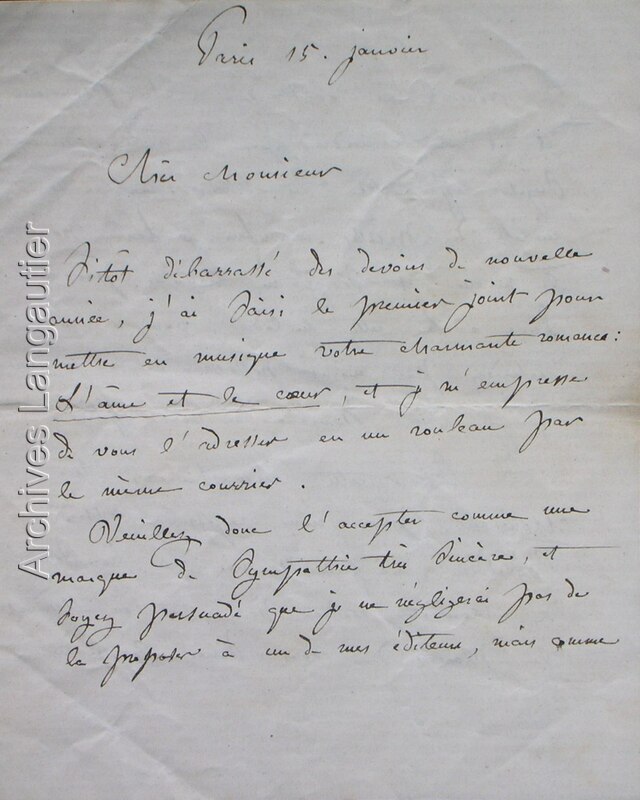 Paris 15. janvier
Cher Monsieur
Sitôt débarrassé des devoirs de nouvelle
année, j'ai saisi le premier joint pour
mettre en musique votre charmante romance:
L'âme et le cœur, et je m'empresse
de vous l'adresser en un rouleau par
le même courrier.
Veuillez donc l'accepter comme une
marque de sympathie très sincère, et
soyez persuadé que je ne négligerai pas de
la proposer à un de mes éditeurs, mais comme
Archives Langautier